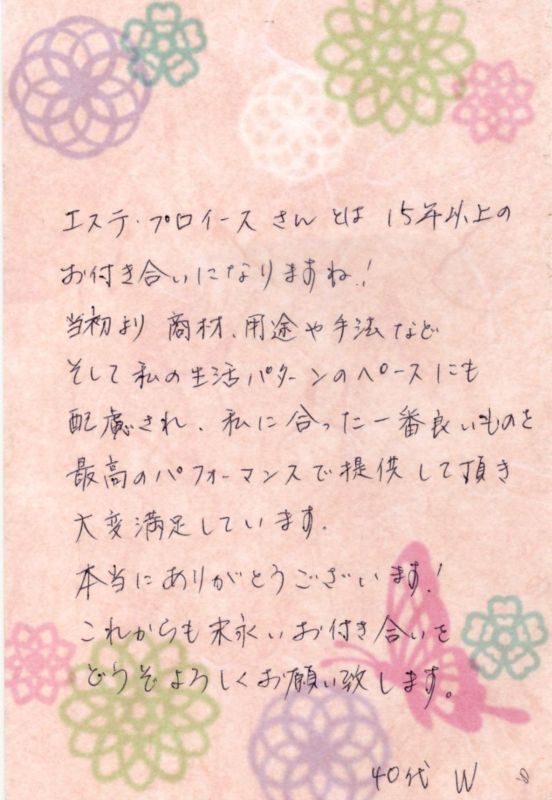 エステ・プロイースさんとは 15年以上の
お付き合いになりますね!
当初より 商材、用途や手法など
そして私の生活パターンのペースにも
配慮され、私に合った一番良いものを
最高のパフォーマンスで提供して頂き
大変満足しています.
本当にありがとうございます!
これからも末永いお付き合いを
どうぞよろしくお願い致します。
40代 W